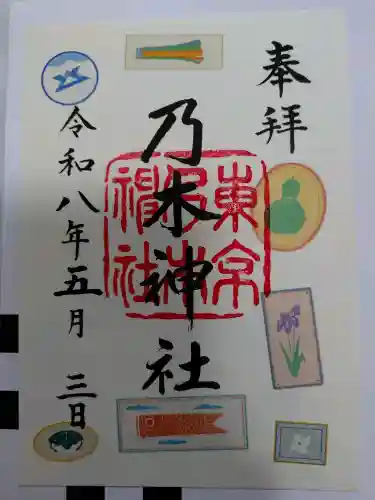 奉拝
乃木神社
東京乃木神社
令和八年五月三日